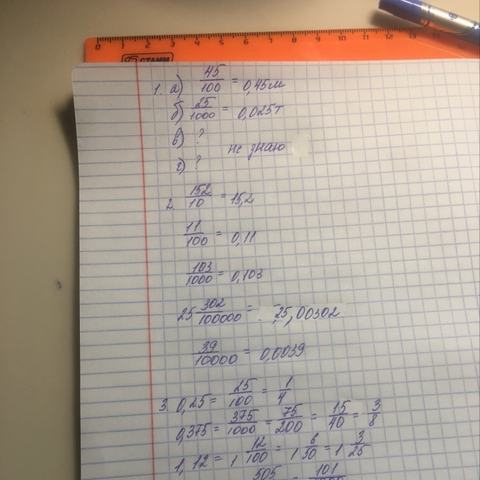 0 1 2 3 4 5 6 7 8 9 10 11 12 13 14
СТАММ
1. а) 45/100 = 0,45м
б) 25/1000 = 0,025т
в) ?
не знаю
г) ?
2. 152/10 = 15,2
11/100 = 0,11
103/1000 = 0,103
25 302/100000 = 25,00302
39/10000 = 0,0039
3. 0,25 = 25/100 = 1/4
0,375 = 375/1000 = 75/200 = 15/40 = 3/8
1,12 = 1 12/100 = 1 6/50 = 1 3/25
505 = 101